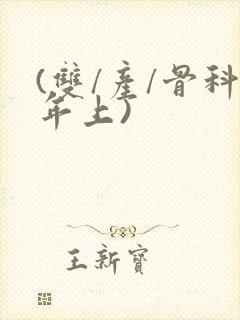 (雙/產/骨科
年上)
王新寶